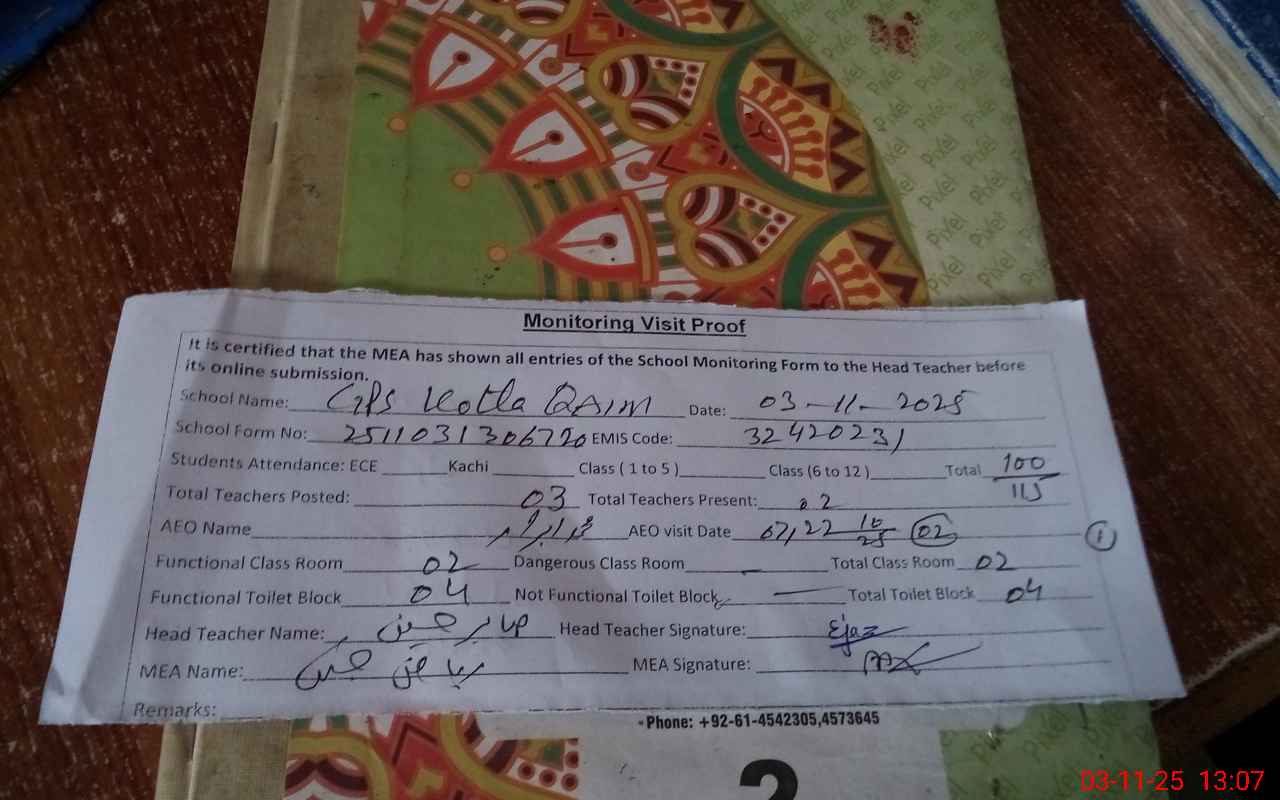 Pixel
Monitoring Visit Proof
It is certified that the MEA has shown all entries of the School Monitoring Form to the Head Teacher before
its online submission.
School Name: GPS Kotla QAIM Date: 03-11-2025
School Form No: 251103130672 EMIS Code: 32420231
Students Attendance: ECE Kachi Class ( 1 to 5 ) Class (6 to 12 ) Total 100/115
Total Teachers Posted: 03 Total Teachers Present: 02
AEO Name AEO visit Date 07,22 10/25 02 1
Functional Class Room 02 Dangerous Class Room - Total Class Room 02
Functional Toilet Block 04 Not Functional Toilet Block - Total Toilet Block 04
Head Teacher Name: صابر حسین Head Teacher Signature: Ejaz
MEA Name: ریاض حسین MEA Signature:
Remarks:
Phone: +92-61-4542305,4573645
2
03-11-25 13:07